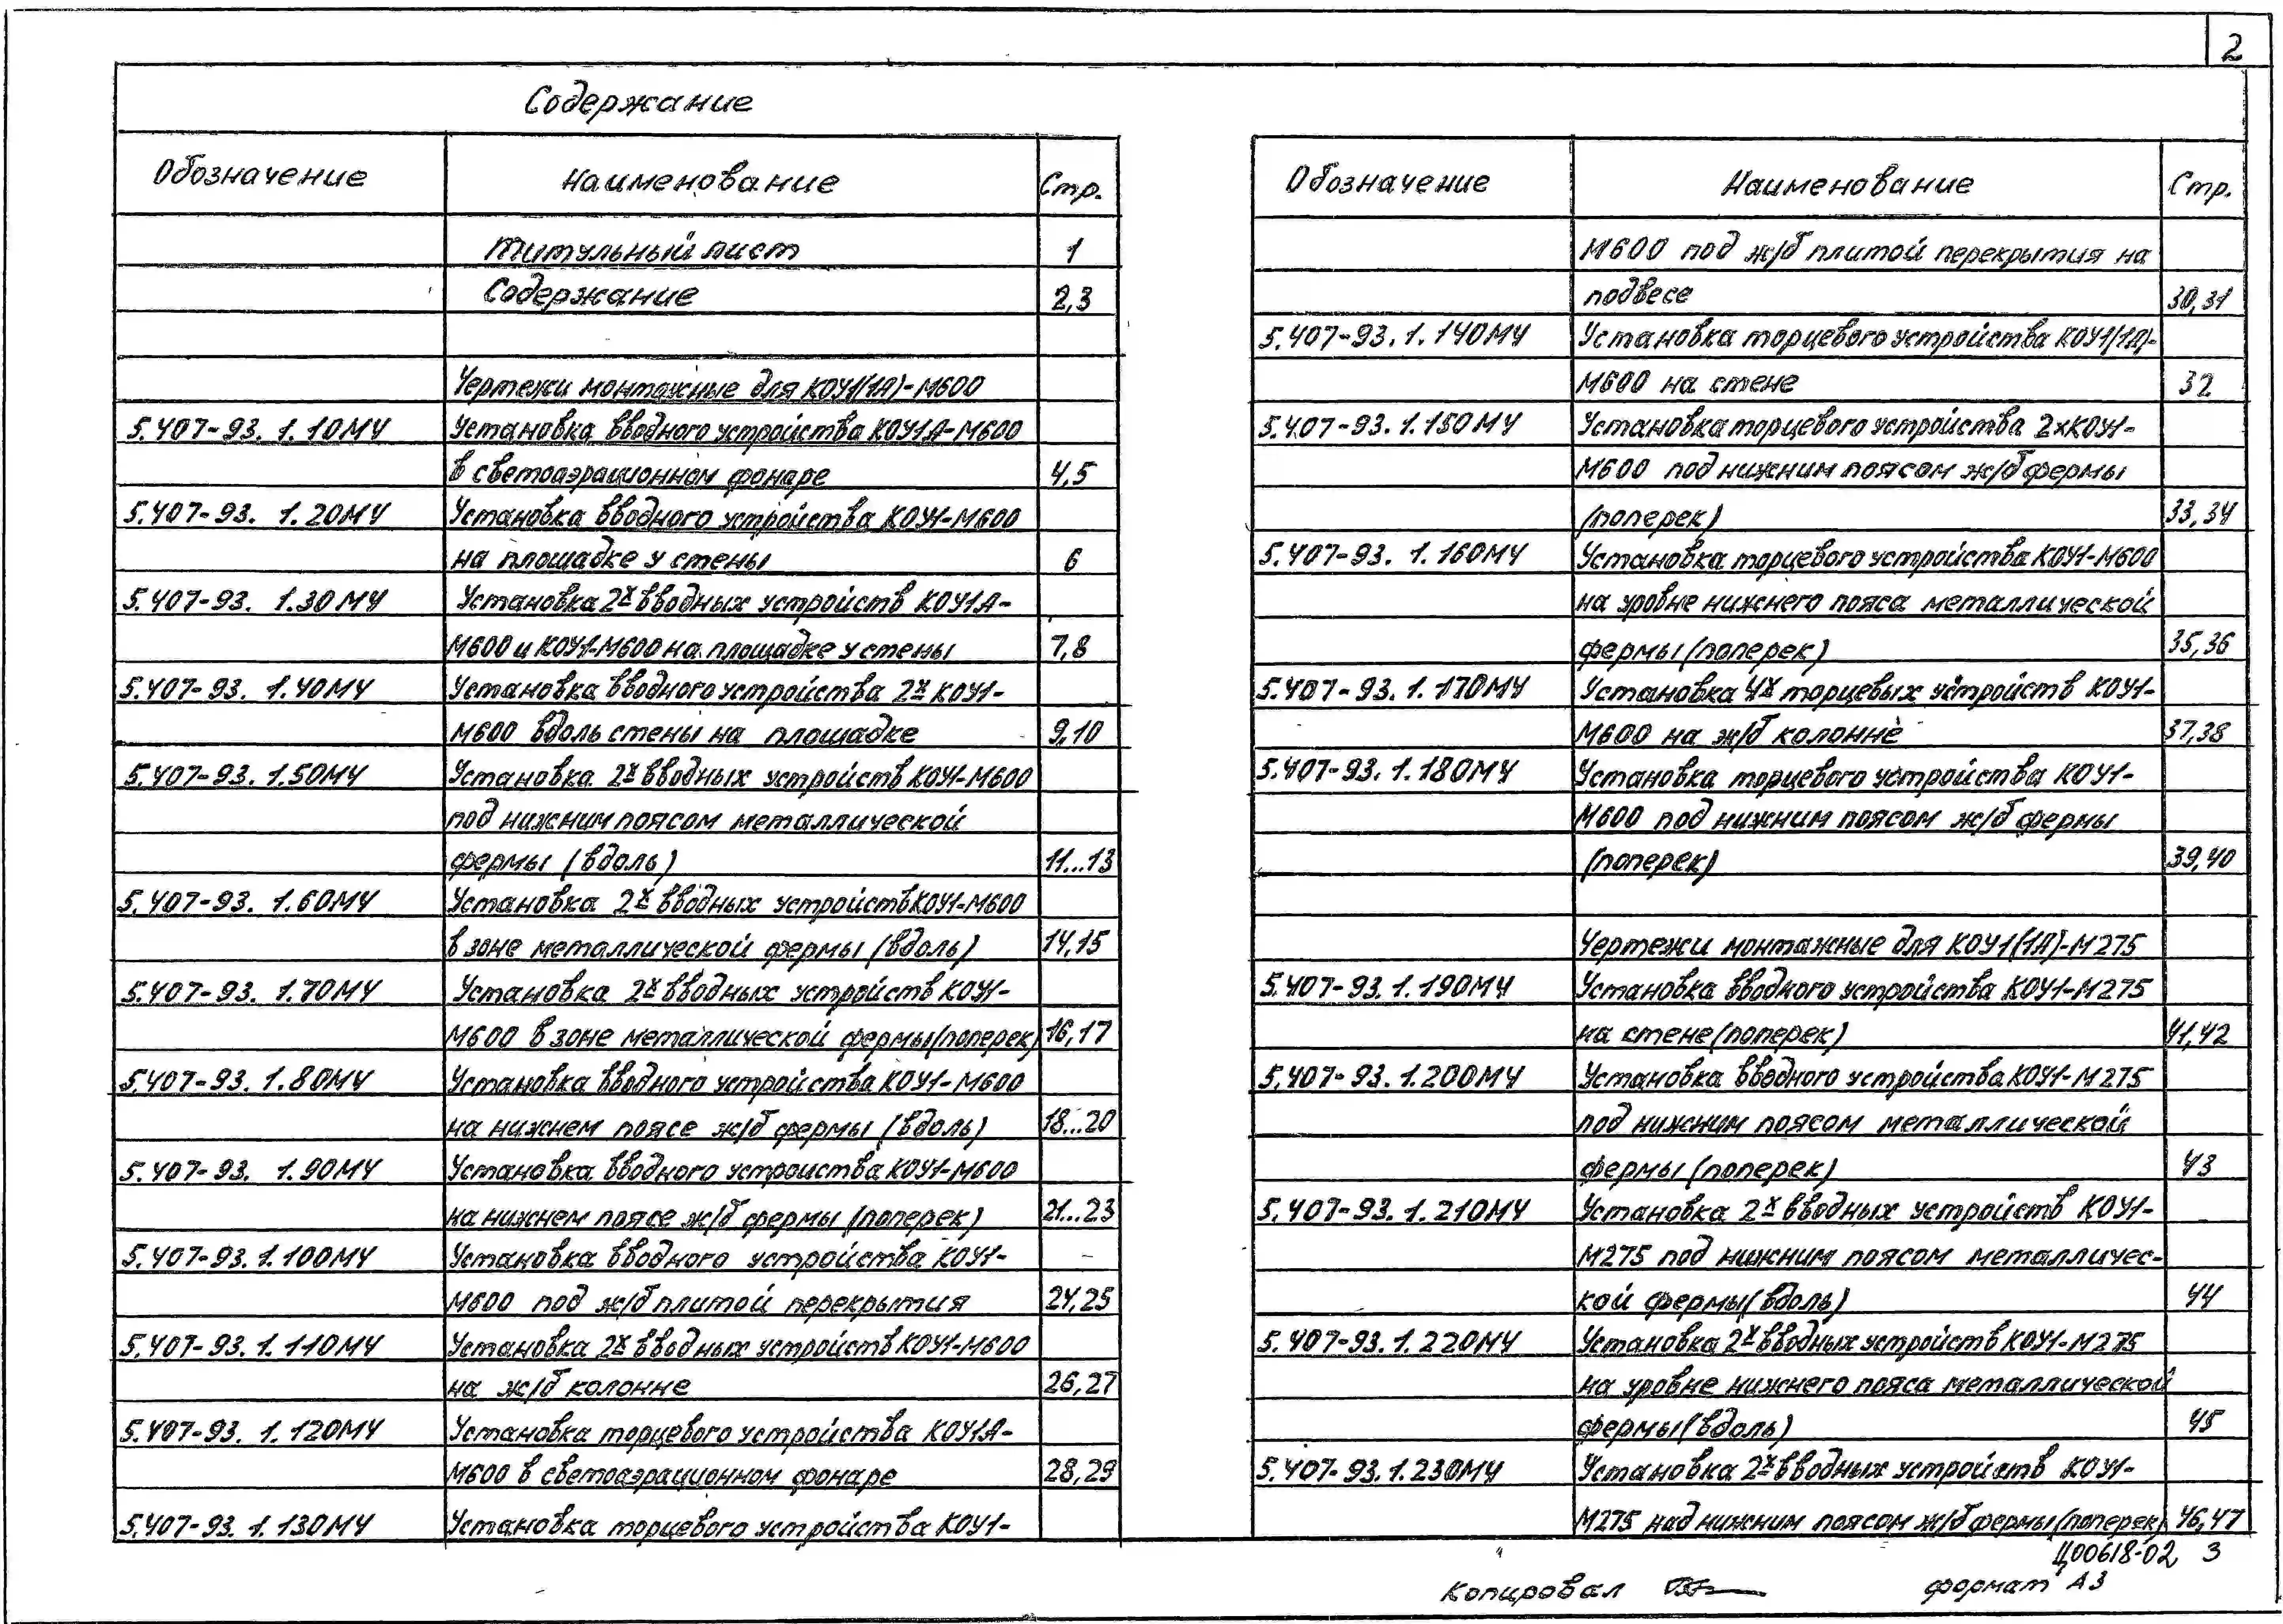 2
Содержание
Обозначение Наименование Стр.
Титульный лист 1
Содержание 2,3
Чертежи монтажные для КОУ1(1А)-М600
5.407-93. 1.10МЧ Установка вводного устройства КОУ1А-М600
в светоаэрационном фонаре 4,5
5.407-93. 1.20МЧ Установка вводного устройства КОУ1-М600
на площадке у стены 6
5.407-93. 1.30МЧ Установка 2х вводных устройств КОУ1А-
М600 и КОУ1-М600 на площадке у стены 7,8
5.407-93. 1.40МЧ Установка вводного устройства 2х КОУ1-
М600 вдоль стены на площадке 9,10
5.407-93. 1.50МЧ Установка 2х вводных устройств КОУ1-М600
под нижним поясом металлической
фермы (вдоль) 11...13
5.407-93. 1.60МЧ Установка 2х вводных устройств КОУ1-М600
в зоне металлической фермы (вдоль) 14,15
5.407-93. 1.70МЧ Установка 2х вводных устройств КОУ1-
М600 в зоне металлической фермы (поперек) 16,17
5.407-93. 1.80МЧ Установка вводного устройства КОУ1-М600
на нижнем поясе ж/б фермы (вдоль) 18...20
5.407-93. 1.90МЧ Установка вводного устройства КОУ1-М600
на нижнем поясе ж/б фермы (поперек) 21...23
5.407-93.1.100МЧ Установка вводного устройства КОУ1-
М600 под ж/б плитой перекрытия 24,25
5.407-93.1.110МЧ Установка 2х вводных устройств КОУ1-М600
на ж/б колонне 26,27
5.407-93. 1.120МЧ Установка торцевого устройства КОУ1А-
М600 в светоаэрационном фонаре 28,29
5.407-93. 1.130МЧ Установка торцевого устройства КОУ1-
Обозначение Наименование Стр.
М600 под ж/б плитой перекрытия на
подвесе 30,31
5.407-93.1.140МЧ Установка торцевого устройства КОУ1(1А)-
М600 на стене 32
5.407-93.1.150МЧ Установка торцевого устройства 2хКОУ1-
М600 под нижним поясом ж/б фермы
(поперек) 33,34
5.407-93. 1.160МЧ Установка торцевого устройства КОУ1-М600
на уровне нижнего пояса металлической
фермы (поперек) 35,36
5.407-93.1.170МЧ Установка 4х торцевых устройств КОУ1-
М600 на ж/б колонне 37,38
5.407-93.1.180МЧ Установка торцевого устройства КОУ1-
М600 под нижним поясом ж/б фермы
(поперек) 39,40
Чертежи монтажные для КОУ1(1А)-М275
5.407-93.1.190МЧ Установка вводного устройства КОУ1-М275
на стене (поперек) 41,42
5.407-93.1.200МЧ Установка вводного устройства КОУ1-М275
под нижним поясом металлической
фермы (поперек) 43
5.407-93.1.210МЧ Установка 2х вводных устройств КОУ1-
М275 под нижним поясом металличес-
кой фермы (вдоль) 44
5.407-93.1.220МЧ Установка 2х вводных устройств КОУ1-М275
на уровне нижнего пояса металлической
фермы (вдоль) 45
5.407-93.1.230МЧ Установка 2х вводных устройств КОУ1-
М275 над нижним поясом ж/б фермы (поперек) 46,47
Ц00618-02 3
Копировал формат А3